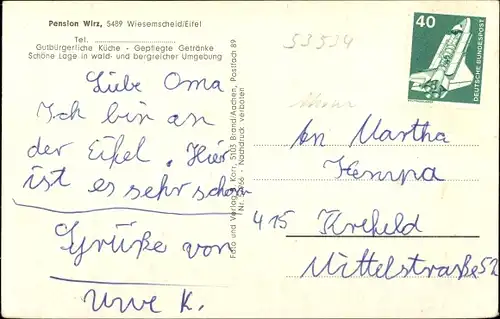 Pension Wirz, 5489 Wiesemscheid/Eifel
Tel.
Gutbürgerliche Küche - Gepflegte Getränke
Schöne Lage in wald- und bergreicher Umgebung
Liebe Oma
Ich bin an
der Eifel. Hier
ist es sehr schön
Grüße von
Uwe K.
Foto und Verlag K. Korr, 5103 Brand/Aachen, Postfach 89
Nachdruck verboten
53534
40
DEUTSCHE BUNDESPOST
An Martha
Kempa
415 Krefeld
Mittelstraße 52